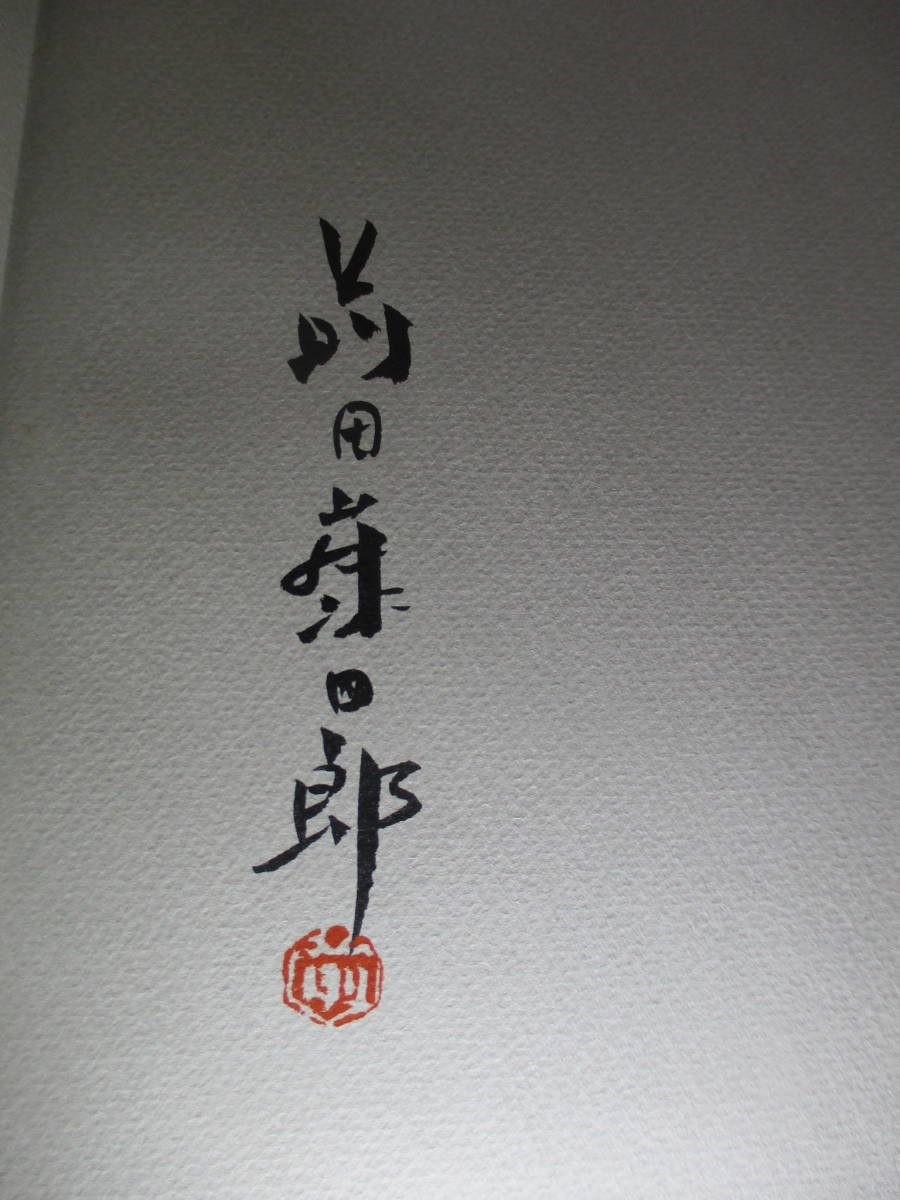 前田藤四郎